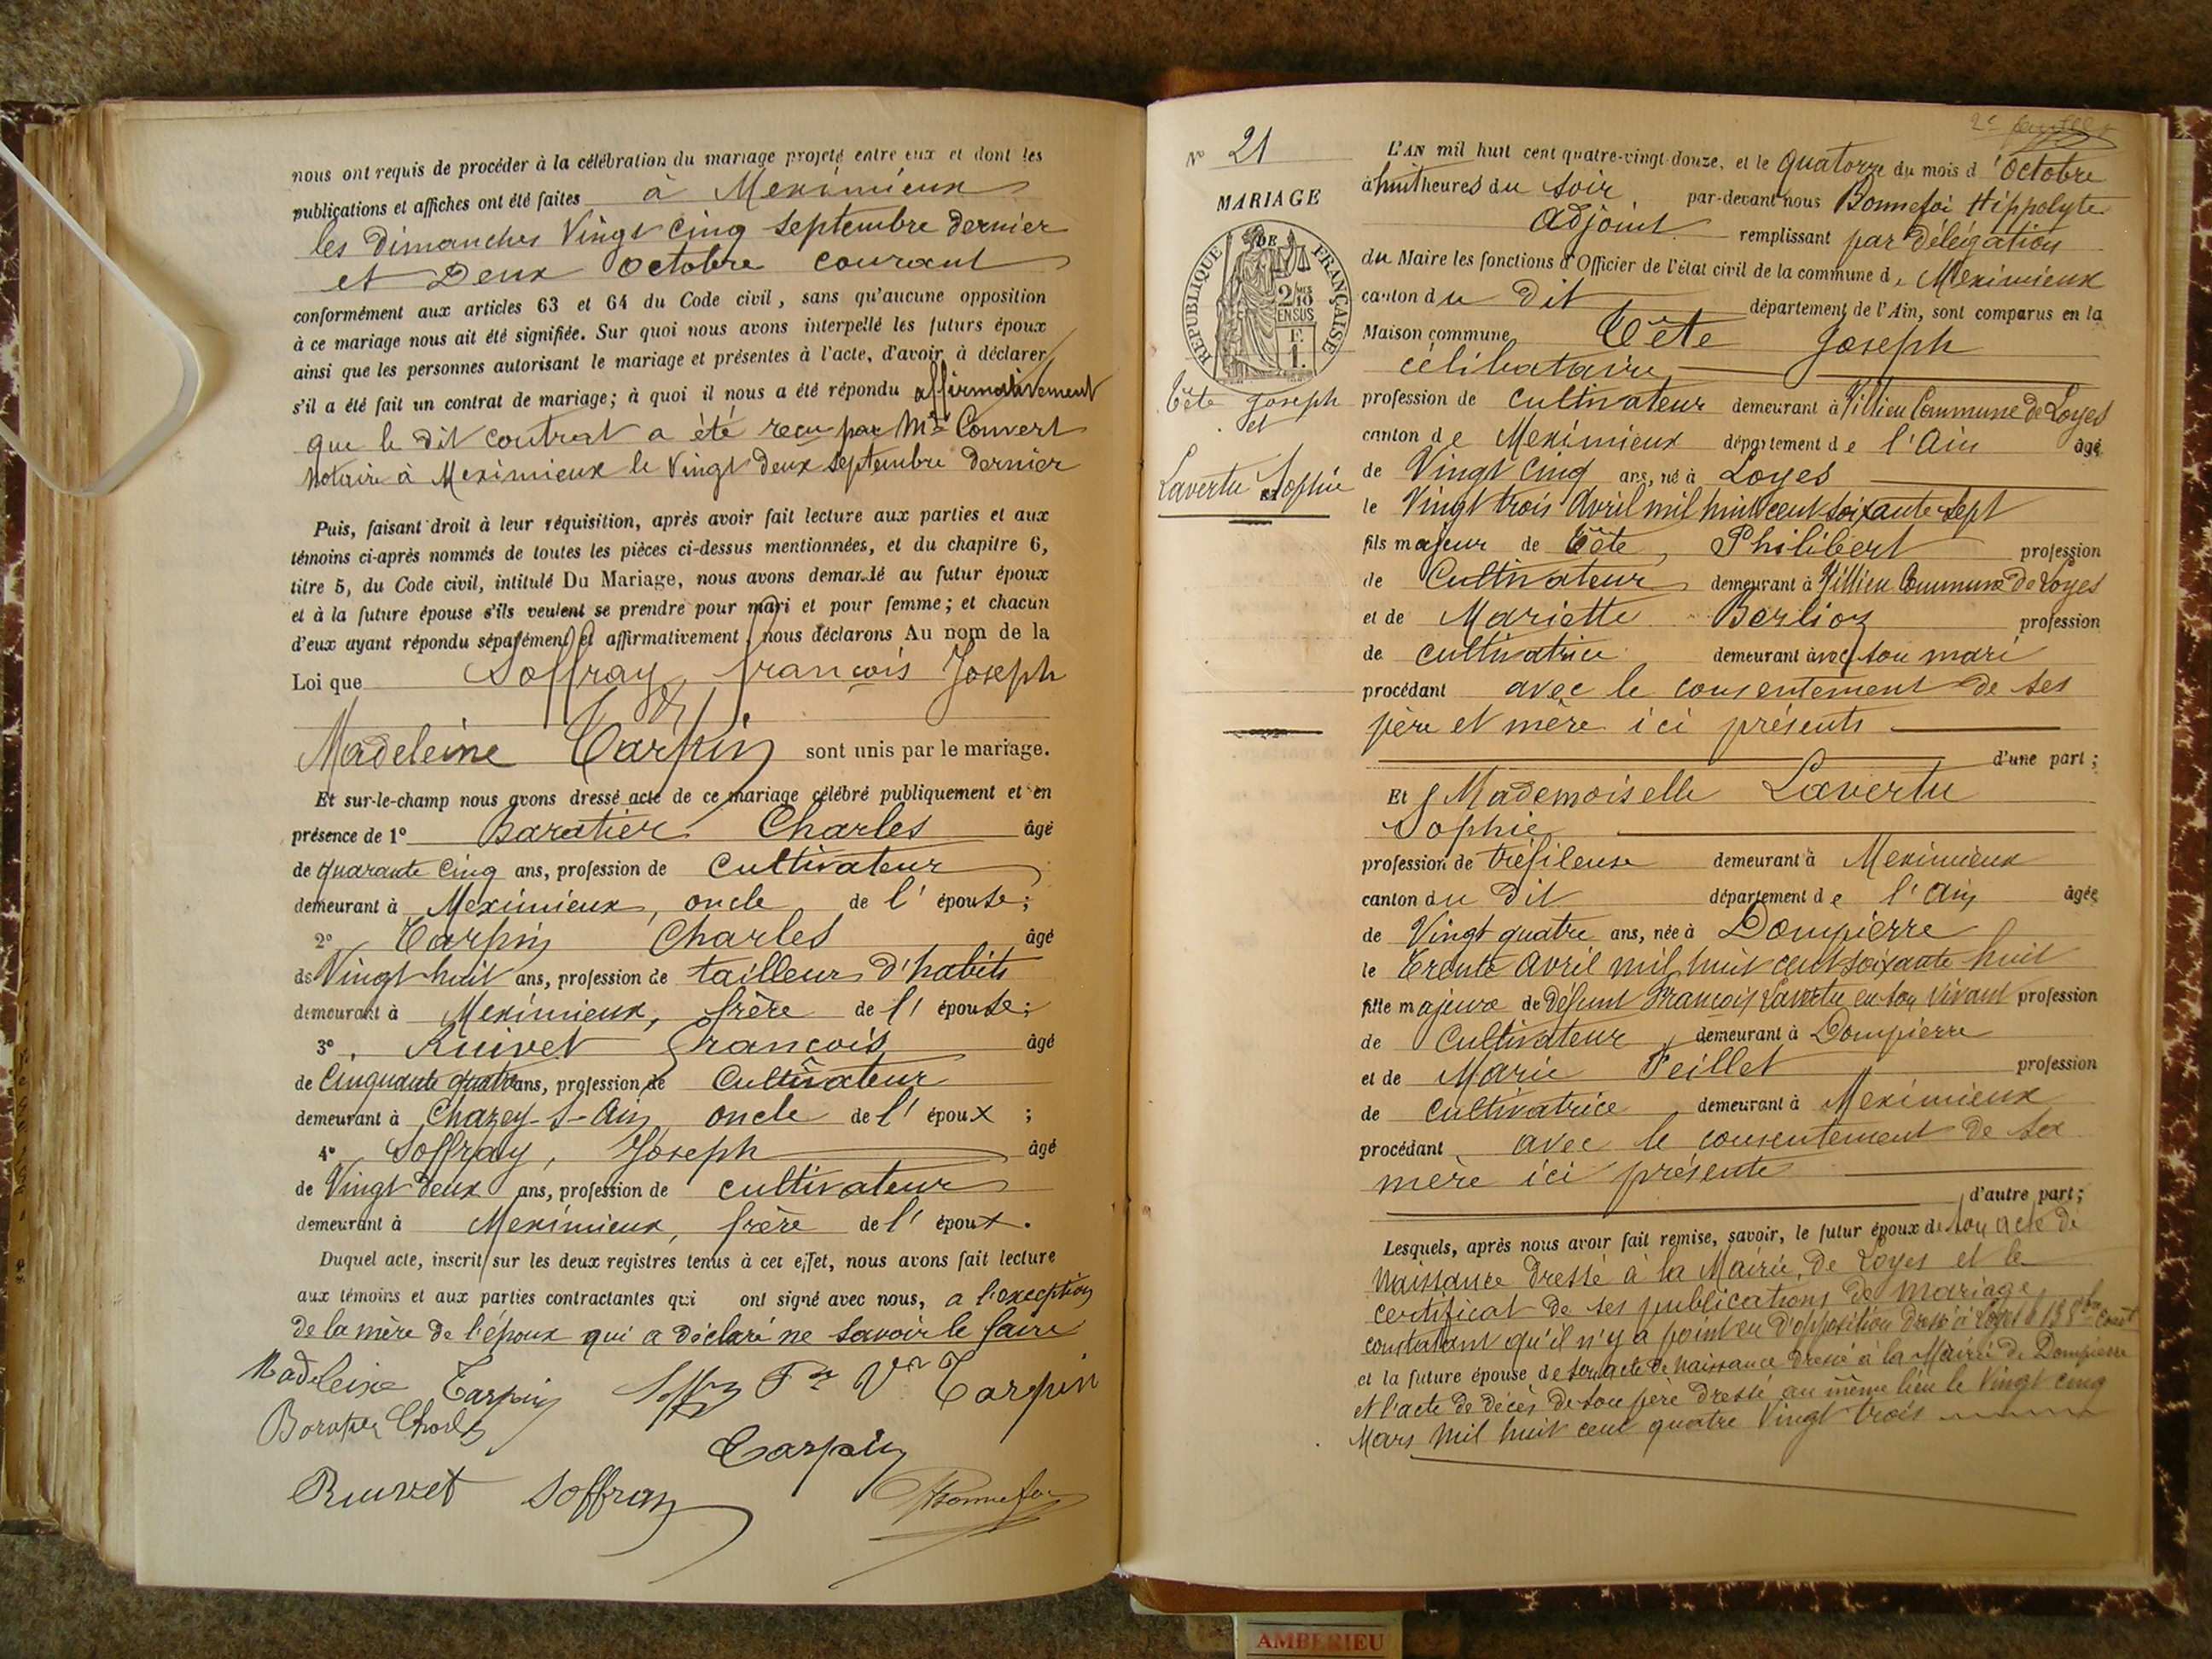 nous ont requis de procéder à la célébration du mariage projeté entre eux et dont les
publications et affiches ont été faites à Meximieux
les dimanches Vingt cinq Septembre dernier
et Deux Octobre courant
conformément aux articles 63 et 64 du Code civil, sans qu'aucune opposition
à ce mariage nous ait été signifiée. Sur quoi nous avons interpellé les futurs époux
ainsi que les personnes autorisant le mariage et présentes à l'acte, d'avoir à déclarer
s'il a été fait un contrat de mariage; à quoi il nous a été répondu affirmativement
que le dit contrat a été reçu par Me Convert
Notaire à Meximieux le Vingt deux Septembre dernier
Puis, faisant droit à leur réquisition, après avoir fait lecture aux parties et aux
témoins ci-après nommés de toutes les pièces ci-dessus mentionnées, et du chapitre 6,
titre 5, du Code civil, intitulé Du Mariage, nous avons demandé au futur époux
et à la future épouse s'ils veulent se prendre pour mari et pour femme; et chacun
d'eux ayant répondu séparément et affirmativement, nous déclarons Au nom de la
Loi que Soffray, François Joseph
et
Madeleine Carpin sont unis par le mariage.
Et sur-le-champ nous avons dressé acte de ce mariage célébré publiquement et en
présence de 1° Baratier Charles âgé
de quarante cinq ans, profession de Cultivateur
demeurant à Meximieux, oncle de l'épouse;
2° Carpin Charles âgé
de Vingt huit ans, profession de tailleur d'habits
demeurant à Meximieux, frère de l'épouse;
3° Ruivet François âgé
de Cinquante quatre ans, profession de Cultivateur
demeurant à Chazey-s-Ain oncle de l'époux;
4° Soffray, Joseph âgé
de Vingt deux ans, profession de cultivateur
demeurant à Meximieux, frère de l'époux.
Duquel acte, inscrit sur les deux registres tenus à cet effet, nous avons fait lecture
aux témoins et aux parties contractantes qui ont signé avec nous, a l'exception
de la mère de l'époux qui a déclaré ne savoir le faire
Madeleine Carpin Carpin
Baratier Charles
Carpin
Ruivet Soffray Bonnefoi
2e feuillet
N° 21
MARIAGE
RÉPUBLIQUE FRANÇAISE
2/10 EN SUS
F. 1.
Tête Joseph
et
Lavertu Sophie
L'AN mil huit cent quatre-vingt-douze, et le quatorze du mois d'Octobre
à huit heures du soir par-devant nous Bonnefoi Hippolyte
Adjoint remplissant par délégation
du Maire les fonctions d'Officier de l'état civil de la commune de Meximieux
canton du dit département de l'Ain, sont comparus en la
Maison commune Tête Joseph
célibataire
profession de cultivateur demeurant à Villieu Commune de Loyes
canton de Meximieux département de l'Ain âgé
de Vingt cinq ans, né à Loyes
le Vingt trois Avril mil huit cent soixante sept
fils majeur de Tête, Philibert profession
de Cultivateur demeurant à Villieu Commune de Loyes
et de Mariette Berlioz profession
de cultivatrice demeurant avec son mari
procédant avec le consentement de ses
père et mère ici présents
d'une part;
Et Mademoiselle Lavertu
Sophie
profession de tréfileuse demeurant à Meximieux
canton du dit département de l'Ain âgée
de Vingt quatre ans, née à Dompierre
le Trente Avril mil huit cent soixante huit
fille majeure de défunt François Lavertu en son vivant profession
de Cultivateur demeurant à Dompierre
et de Marie Feillet profession
de cultivatrice demeurant à Meximieux
procédant avec le consentement de sa
mère ici présente
d'autre part;
Lesquels, après nous avoir fait remise, savoir, le futur époux de son acte de
Naissance dressé à la Mairie de Loyes et le
certificat de ses publications de mariage
constatant qu'il n'y a point eu d'opposition dressé à Loyes le 13 8bre Cour
et la future épouse de son acte de Naissance dressé à la Mairie de Dompierre
et l'acte de décès de son père dressé au même lieu le Vingt cinq
Mars Mil huit cent quatre Vingt trois
AMBERIEU